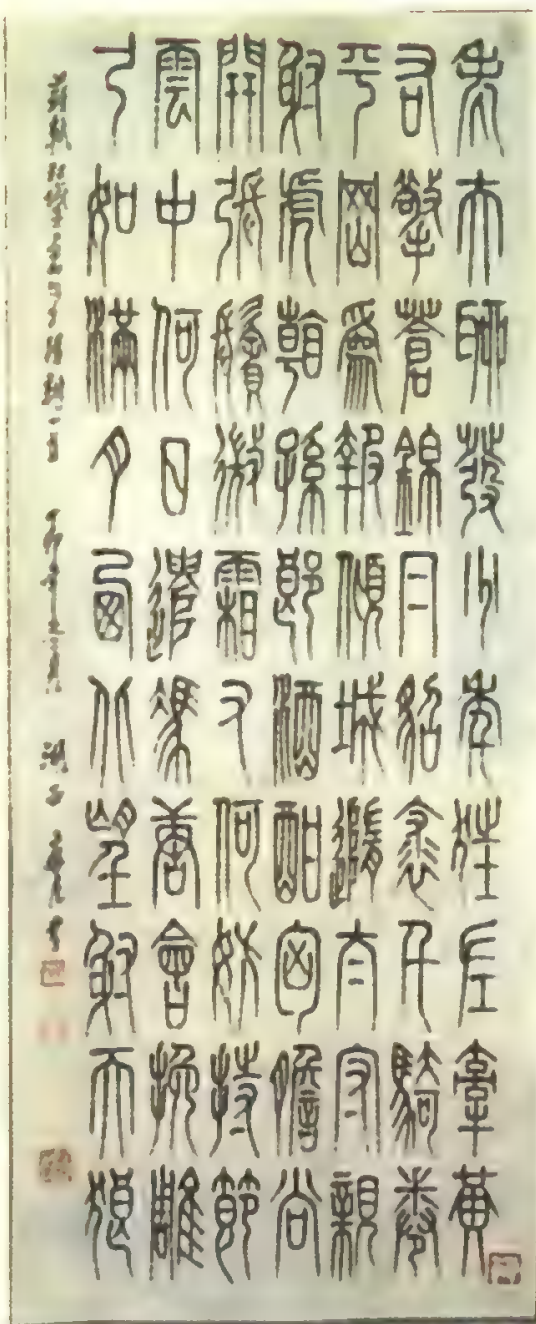 老夫聊發少年狂左牽黃
右擎蒼錦帽貂裘千騎卷
平岡為報傾城隨太守親
射虎看孫郎酒酣胸膽尚
開張鬢微霜又何妨持節
雲中何日遣馮唐會挽雕
弓如滿月西北望射天狼
蘇軾江城子 一首 丁卯年